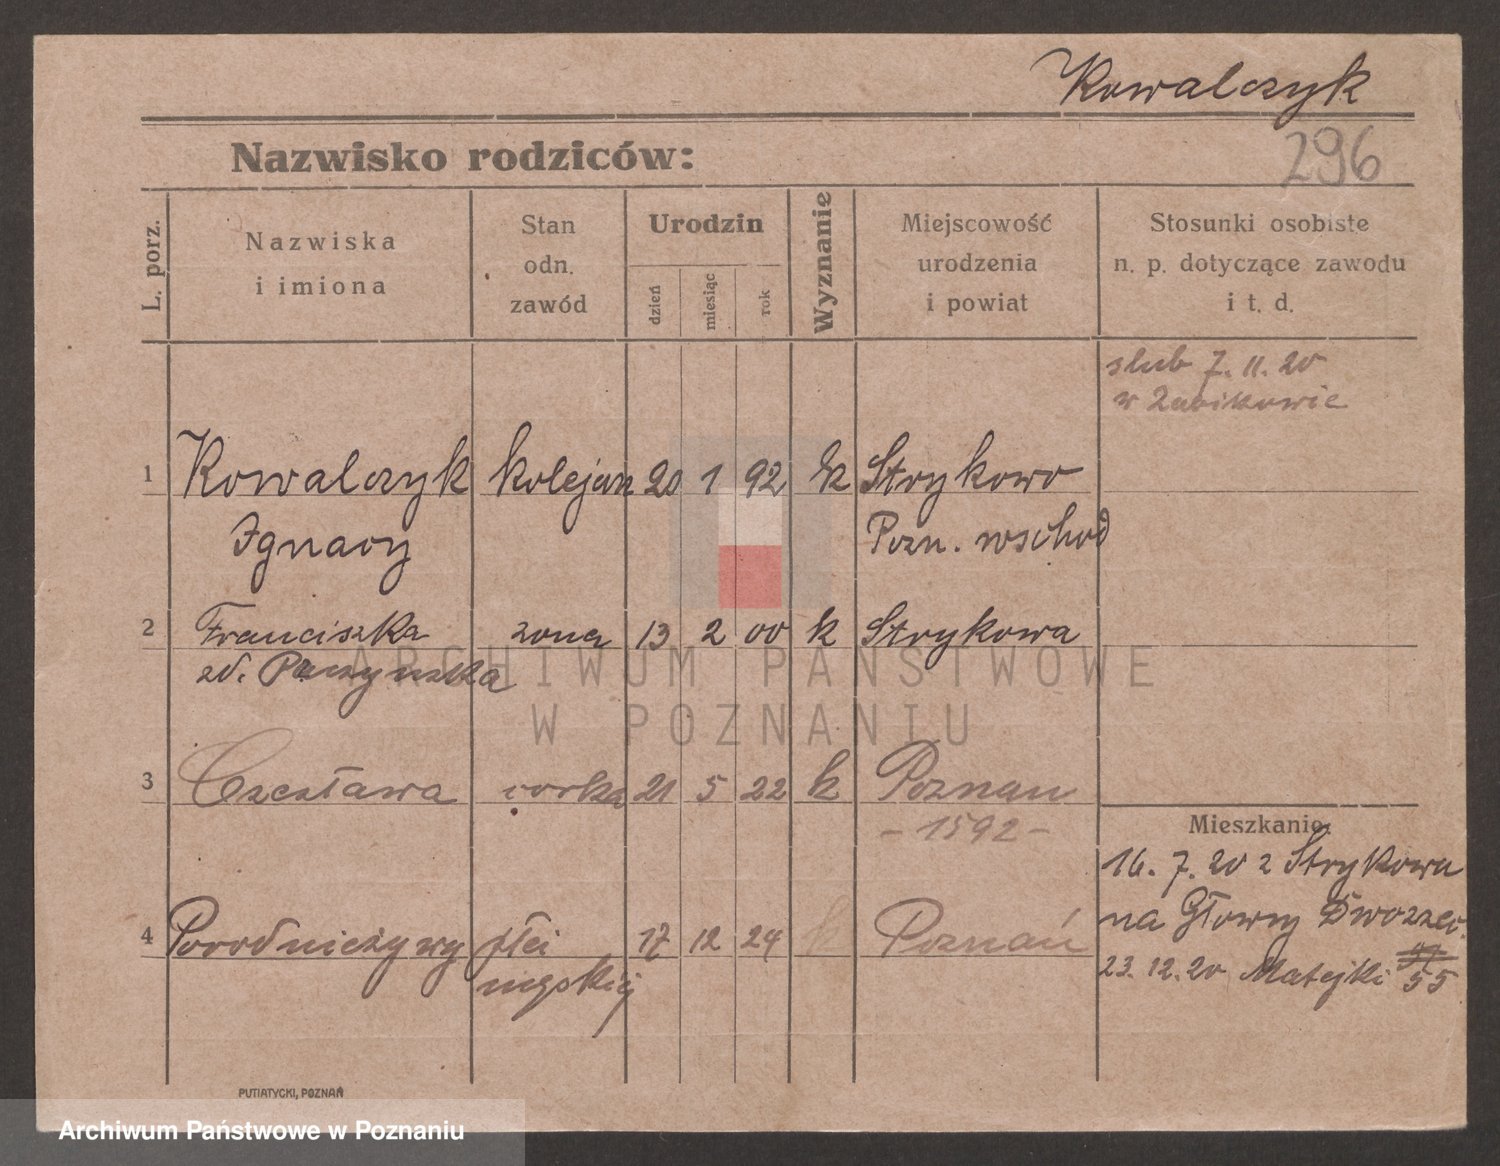 Kowalczyk
296
Nazwisko rodziców:
L. porz.
Nazwiska
i imiona
Stan
odn.
zawód
Urodzin
dzień
miesiąc
rok
Wyznanie
Miejscowość
urodzenia
i powiat
Stosunki osobiste
n. p. dotyczące zawodu
i t. d.
slub 7. 11. 20
w Żabikowie
1 Kowalczyk kolejarz 20 1 92 k Strykowo
Ignacy Pozn. wschod
2 Franciszka zona 13 2 00 k Strykowa
zd.
3 Czesława corka 21 5 22 k Poznan
- 1592 -
Mieszkanie:
16. 7. 20 z Strykowa
na Głowny Dworzec
4 płci 17 12 24 k Poznań
męskiej
23. 12. 20 Matejki 55
PUTIATYCKI, POZNAŃ
ARCHIWUM PAŃSTWOWE
W POZNANIU
Archiwum Państwowe w Poznaniu